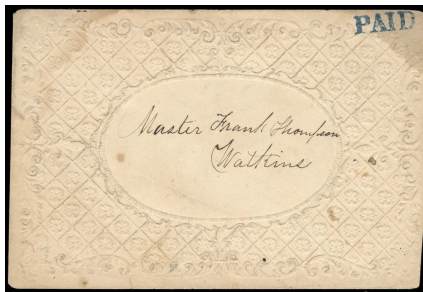 PAID
Master Frank Thompson
Watkins